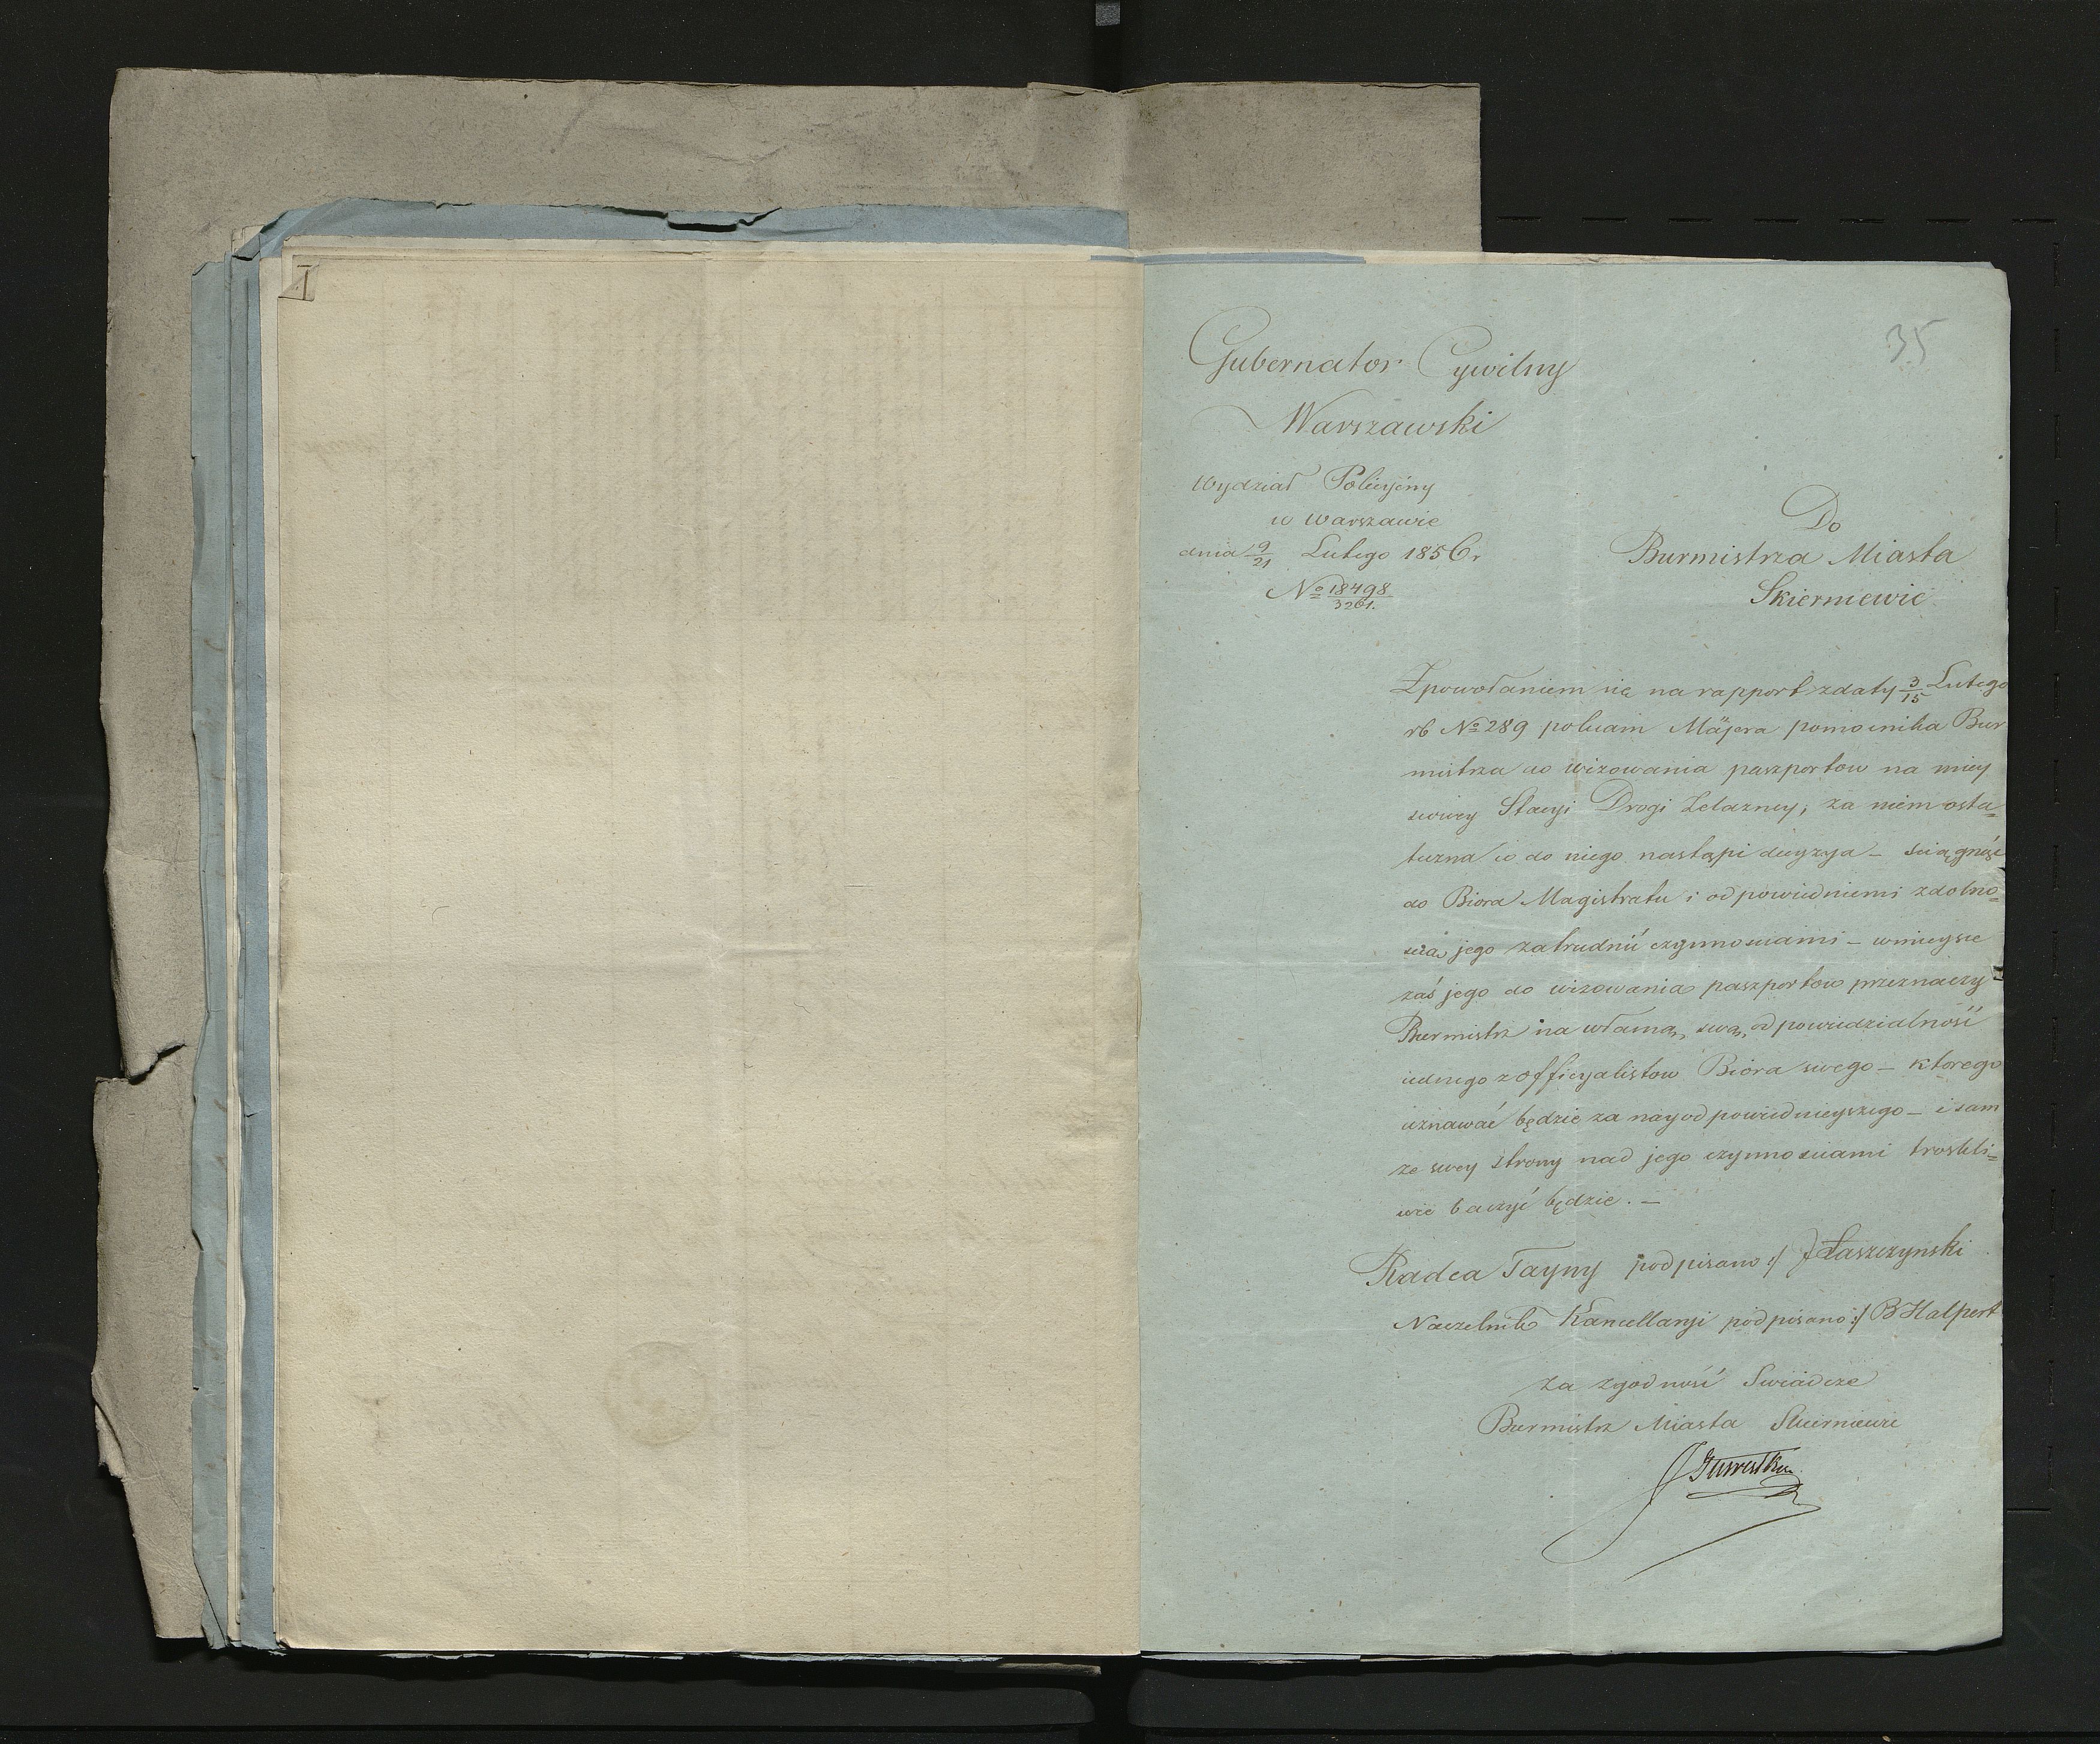 35
Gubernator Cywilny
Warszawski
Wydział Policyjny
w Warszawie
dnia 9/21 Lutego 1856 r
No 18498/3261.
Do
Burmistrza Miasta
Skierniewic
Z powołaniem się na rapport z daty 3/15 Lutego
rb No 289 polecam Majera pomocnika Bur
mistrza do wizowania paszportow na miey
scowey Stacyi Drogi Żelazney, za niem osta=
teczna co do niego nastąpi decyzya – sciągnąć
do Biora Magistratu i odpowiedniemi zdolno=
scią jego zatrudnić czynnosciami – wmieysce
zaś jego do wizowania paszportow przeznaczy
Burmistrz na własną swą odpowiedzialność
iednego z officyalistow Biora swego – ktorego
uznawać będzie za nayodpowiednieyszego – i sam
ze swey strony nad jego czynnosciami troskli=
wie baczyć będzie. –
Radca Tayny podpisano :/ J Łaszczynski
Naczelnik Kancellaryi podpisano :/ B Halpert
Za zgodność Swiadcze
Burmistrz Miasta Skierniewic